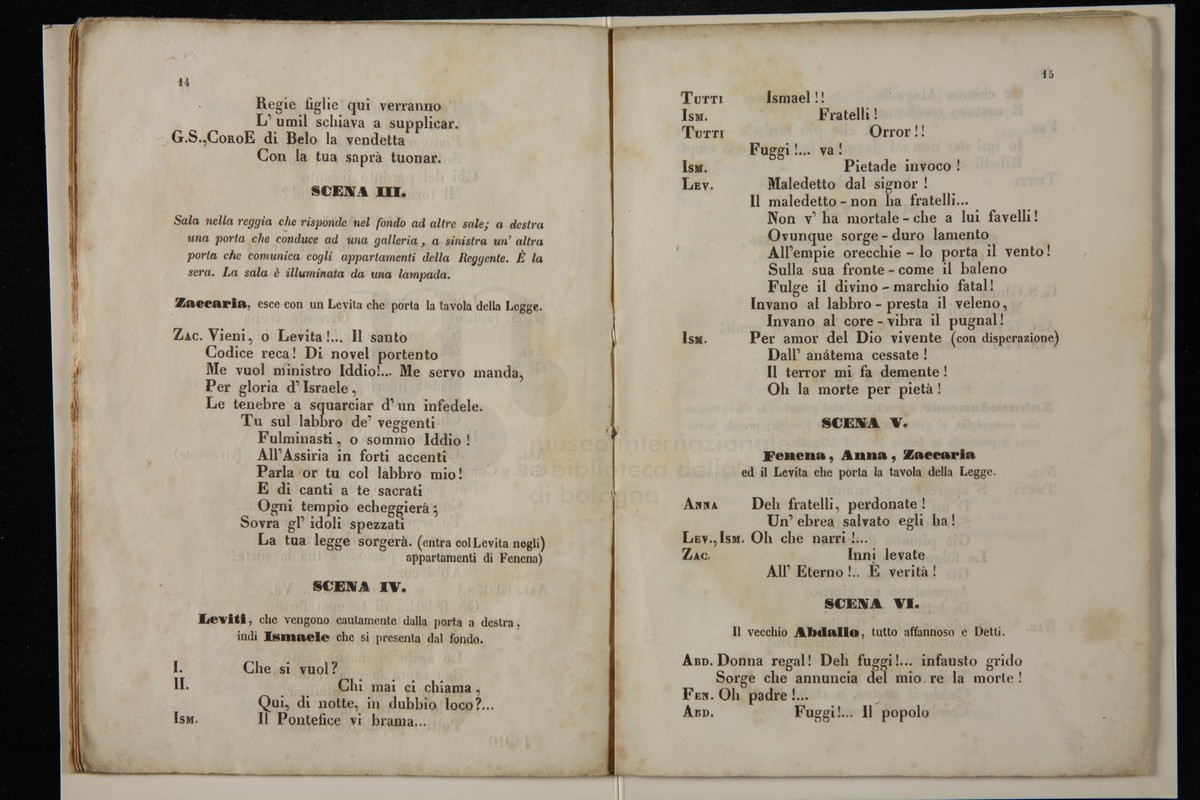 14
Regie figlie qui verranno
L' umil schiava a supplicar.
G.S.,CoroE di Belo la vendetta
Con la tua saprà tuonar.
SCENA III.
Sala nella reggia che risponde nel fondo ad altre sale; a destra
una porta che conduce ad una galleria, a sinistra un' altra
porta che comunica cogli appartamenti della Reggente. È la
sera. La sala è illuminata da una lampada.
Zaccaria, esce con un Levita che porta la tavola della Legge.
Zac. Vieni, o Levita!... Il santo
Codice reca! Di novel portento
Me vuol ministro Iddio!... Me servo manda,
Per gloria d' Israele,
Le tenebre a squarciar d' un infedele.
Tu sul labbro de' veggenti
Fulminasti, o sommo Iddio!
All'Assiria in forti accenti
Parla or tu col labbro mio!
E di canti a te sacrati
Ogni tempio echeggierà;
Sovra gl' idoli spezzati
La tua legge sorgerà. (entra colLevita negli)
appartamenti di Fenena)
SCENA IV.
Leviti, che vengono cautamente dalla porta a destra,
indi Ismaele che si presenta dal fondo.
I. Che si vuol?
II. Chi mai ci chiama,
Qui, di notte, in dubbio loco?...
Ism. Il Pontefice vi brama...
15
Tutti Ismael!!
Ism. Fratelli!
Tutti Orror!!
Fuggi!... va!
Ism. Pietade invoco!
Lev. Maledetto dal signor!
Il maledetto - non ha fratelli...
Non v' ha mortale - che a lui favelli!
Ovunque sorge - duro lamento
All'empie orecchie - lo porta il vento!
Sulla sua fronte - come il baleno
Fulge il divino - marchio fatal!
Invano al labbro - presta il veleno,
Invano al core - vibra il pugnal!
Ism. Per amor del Dio vivente (con disperazione)
Dall' anátema cessate!
Il terror mi fa demente!
Oh la morte per pietà!
SCENA V.
Fenena, Anna, Zaccaria
ed il Levita che porta la tavola della Legge.
Anna Deh fratelli, perdonate!
Un' ebrea salvato egli ha!
Lev., Ism. Oh che narri!...
Zac. Inni levate
All' Eterno!.. È verità!
SCENA VI.
Il vecchio Abdallo, tutto affannoso e Detti.
Abd. Donna regal! Deh fuggi!... infausto grido
Sorge che annuncia del mio re la morte!
Fen. Oh padre!...
Abd. Fuggi!... Il popolo
museo internazionale
e biblioteca della
di bologna